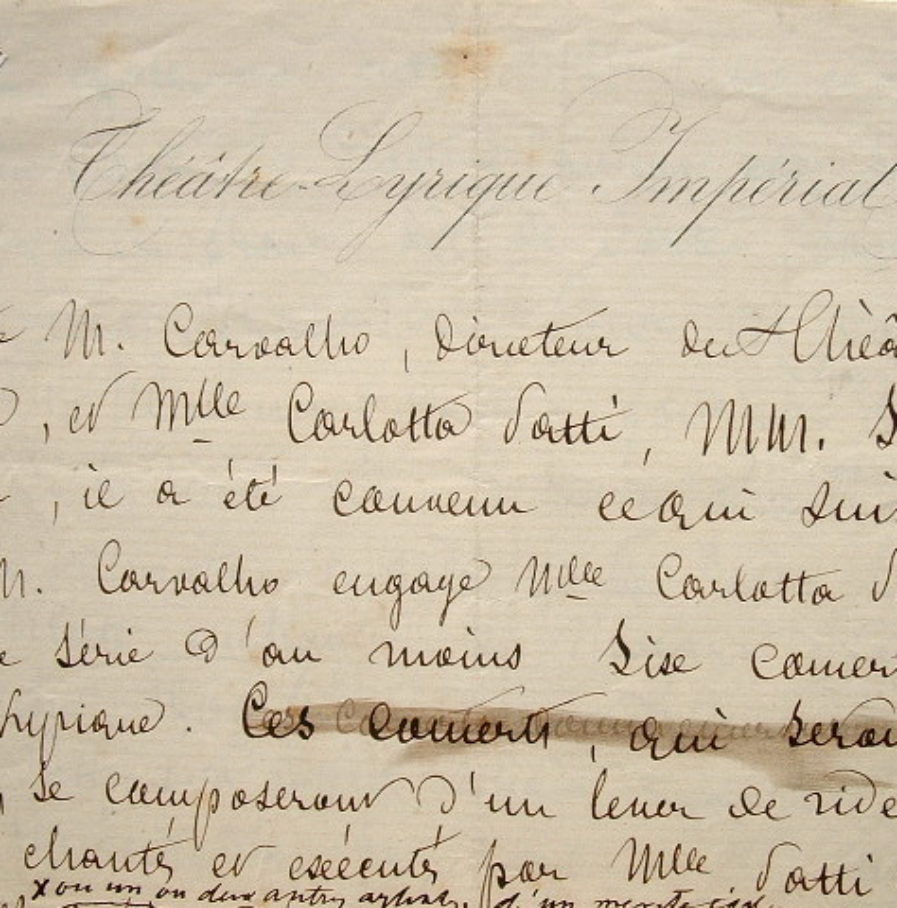 Théâtre-Lyrique Impérial
M. Carvalho, directeur du Théâ
, et Mlle Carlotta Patti, MM. S
, il a été convenu ce qui suit
M. Carvalho engage Mlle Carlotta P
série d'au moins Size concer
Lyrique. Ces concerts, qui seron
, se composeront d'un lever de ride
chantés et exécutés par Mlle Patti
x ou un ou deux autres artistes, d'un